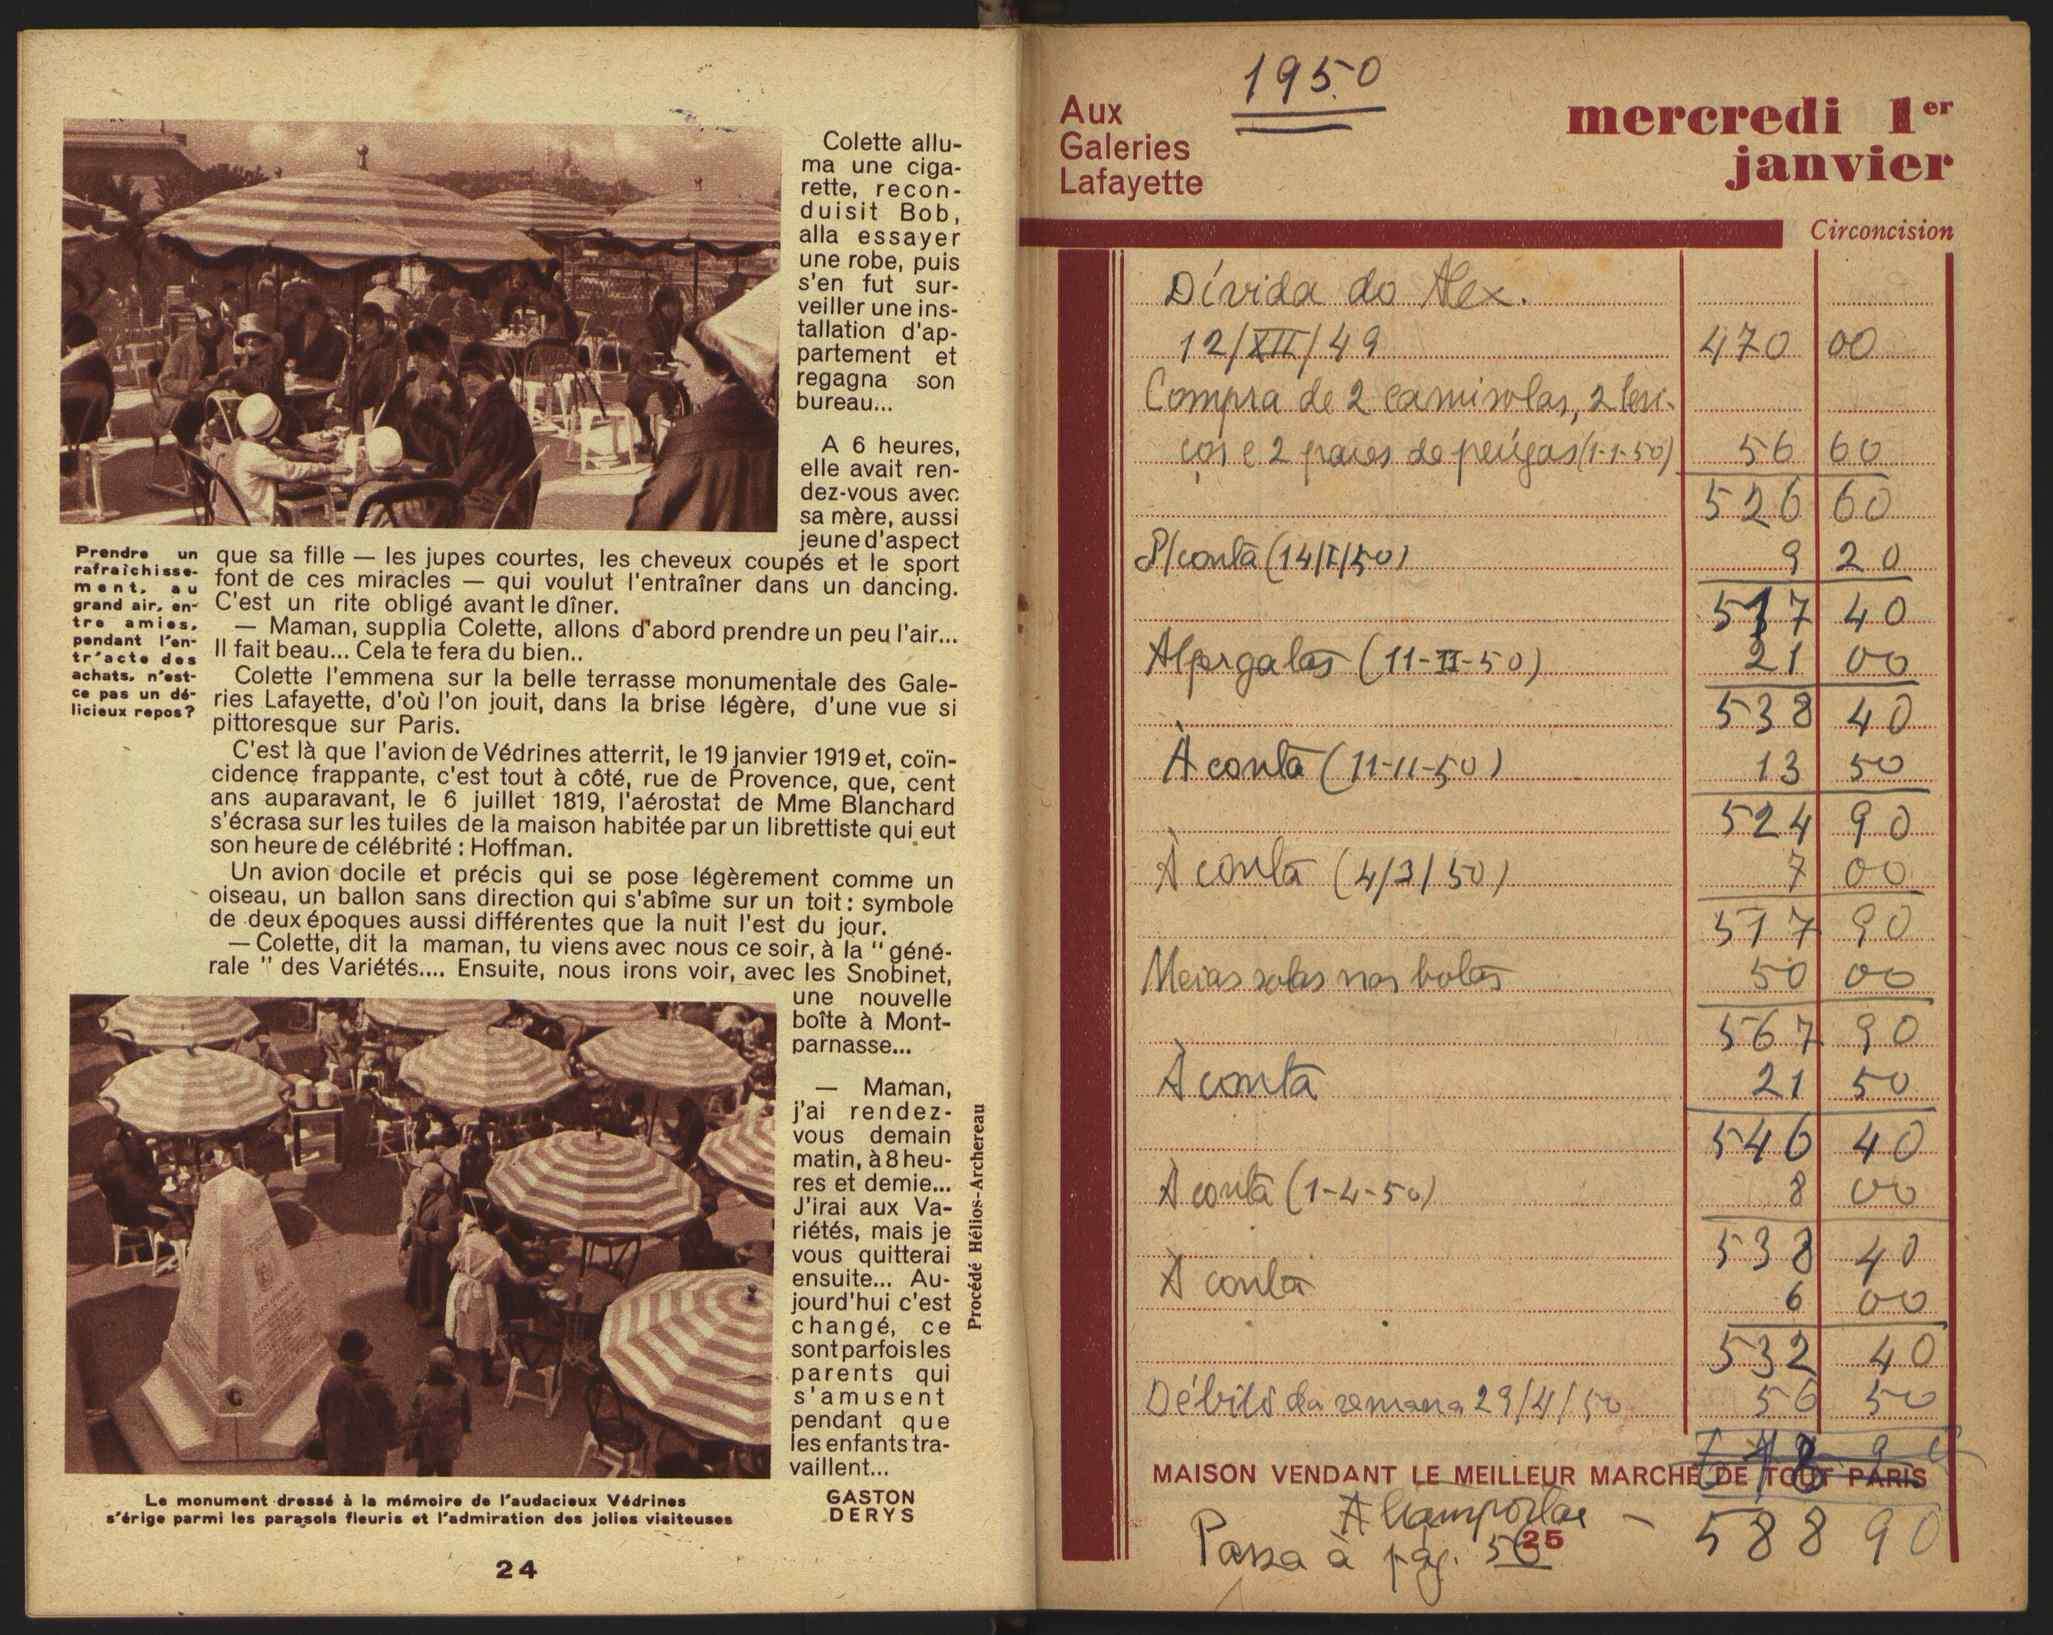 Colette allu-
ma une ciga-
rette, recon-
duisit Bob,
alla essayer
une robe, puis
s'en fut sur-
veiller une ins-
tallation d'ap-
partement et
regagna son
bureau...
A 6 heures,
elle avait ren-
dez-vous avec
sa mère, aussi
jeune d'aspect
que sa fille — les jupes courtes, les cheveux coupés et le sport
font de ces miracles — qui voulut l'entraîner dans un dancing.
C'est un rite obligé avant le dîner.
— Maman, supplia Colette, allons d'abord prendre un peu l'air...
Il fait beau... Cela te fera du bien..
Colette l'emmena sur la belle terrasse monumentale des Gale-
ries Lafayette, d'où l'on jouit, dans la brise légère, d'une vue si
pittoresque sur Paris.
C'est là que l'avion de Védrines atterrit, le 19 janvier 1919 et, coïn-
cidence frappante, c'est tout à côté, rue de Provence, que, cent
ans auparavant, le 6 juillet 1819, l'aérostat de Mme Blanchard
s'écrasa sur les tuiles de la maison habitée par un librettiste qui eut
son heure de célébrité : Hoffman.
Un avion docile et précis qui se pose légèrement comme un
oiseau, un ballon sans direction qui s'abîme sur un toit : symbole
de deux époques aussi différentes que la nuit l'est du jour.
— Colette, dit la maman, tu viens avec nous ce soir, à la "géné-
rale" des Variétés.... Ensuite, nous irons voir, avec les Snobinet,
une nouvelle
boîte à Mont-
parnasse...
— Maman,
j'ai rendez-
vous demain
matin, à 8 heu-
res et demie...
J'irai aux Va-
riétés, mais je
vous quitterai
ensuite... Au-
jourd'hui c'est
changé, ce
sont parfois les
parents qui
s'amusent
pendant que
les enfants tra-
vaillent...
GASTON
DERYS
Prendre un
rafraîchisse-
ment, au
grand air, en-
tre amies,
pendant l'en-
tr'acte des
achats, n'est-
ce pas un dé-
licieux repos?
Procédé Hélios-Archereau
Le monument dressé à la mémoire de l'audacieux Védrines
s'érige parmi les parasols fleuris et l'admiration des jolies visiteuses
24
1950
Aux
Galeries
Lafayette
mercredi 1er
janvier
Circoncision
Dívida do Alex.
12/XII/49 470 00
Compra de 2 camisolas, 2 len-
ços e 2 pares de peúgas (1-1-50) 56 60
526 60
P/conta (14/I/50) 9 20
517 40
Alpergatas (11-II-50) 21 00
538 40
À conta (11-11-50) 13 50
524 90
À conta (4/3/50) 7 00
517 90
Meias solas nas botas 50 00
567 90
À conta 21 50
546 40
À conta (1-4-50) 8 00
538 40
À conta 6 00
532 40
Débito da semana 29/4/50 56 50
MAISON VENDANT LE MEILLEUR MARCHÉ DE TOUT PARIS
A transportar — 588 90
Passa à pág. 56
25